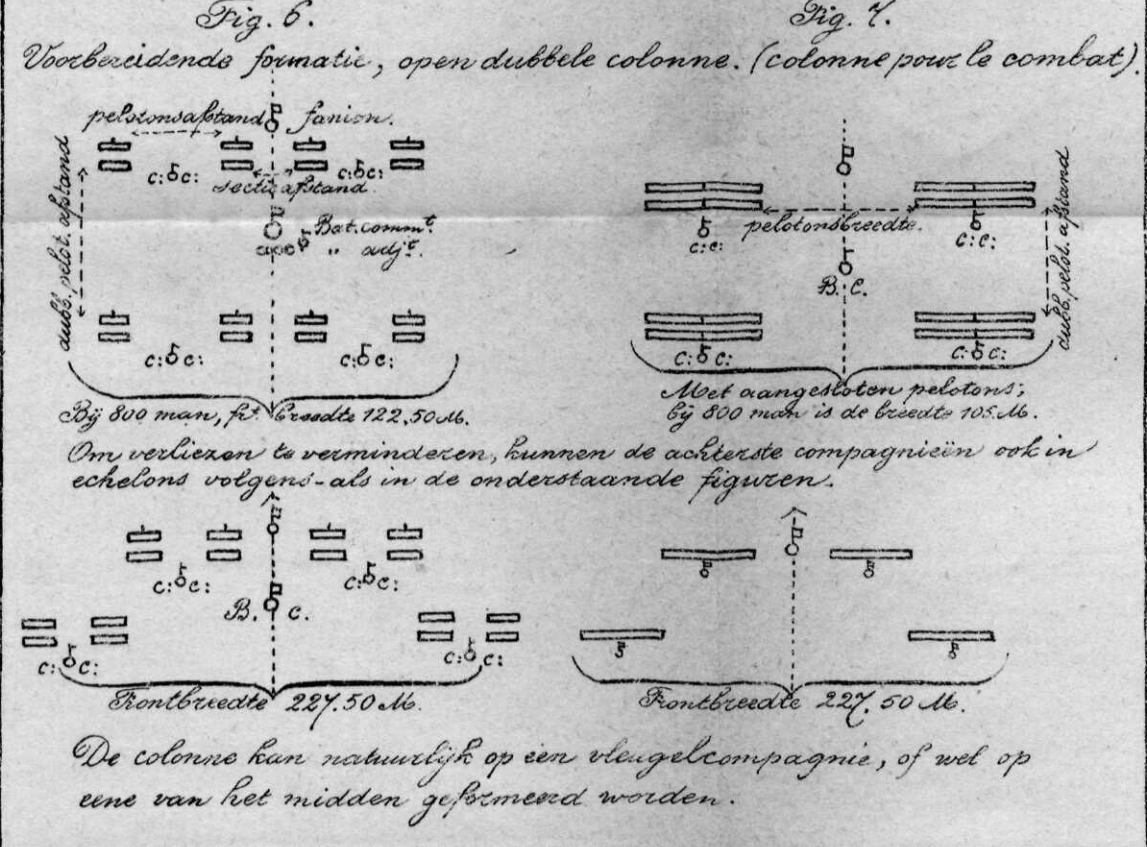 Fig. 6.
Fig. 7.
Voorbereidende formatie, open dubbele colonne. (colonne pour le combat).
pelotonsafstand
fanion.
c: c:
c: c:
sectieafstand
dubb. pelot. afstand
Bat. commt.
" adjt.
c: c:
c: c:
Bij 800 man, frt. breedte 122,50 M.
pelotonsbreedte.
c: c:
c: c:
B. C.
dubb. pelot. afstand
c: c:
c: c:
Met aangesloten pelotons;
bij 800 man is de breedte 105 M.
Om verliezen te verminderen, kunnen de achterste compagnieën ook in
echelons volgens - als in de onderstaande figuren.
c: c:
c: c:
B. C.
c: c:
c: c:
Frontbreedte 227.50 M.
Frontbreedte 227.50 M.
De colonne kan natuurlijk op een vleugelcompagnie, of wel op
eene van het midden geformeerd worden.